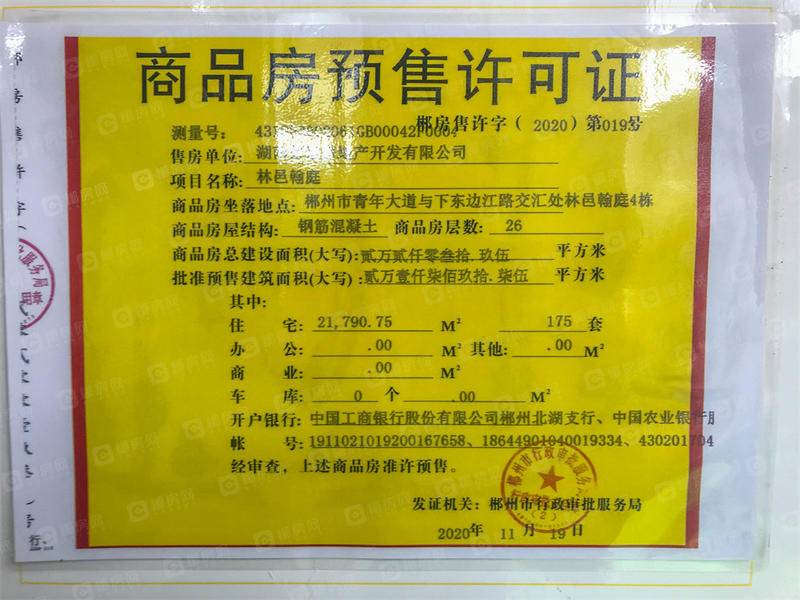 商品房预售许可证
郴房售许字（2020）第019号
测量号：
售房单位：湖 产开发有限公司
项目名称：林邑翰庭
商品房坐落地点：郴州市青年大道与下东边江路交汇处林邑翰庭4栋
商品房屋结构：钢筋混凝土 商品房层数：26
商品房总建设面积(大写)：贰万贰仟零叁拾.玖伍 平方米
批准预售建筑面积(大写)：贰万壹仟柒佰玖拾.柒伍 平方米
其中：
住 宅：21,790.75 M² 175 套
办 公：.00 M² 其他：.00 M²
商 业：.00 M²
车 库：0 个 .00 M²
开户银行：中国工商银行股份有限公司郴州北湖支行、中国农业银行
帐 号：1911021019200167658、18644901040019334、430201704
经审查，上述商品房准许预售。
发证机关：郴州市行政审批服务局
2020年 11 月 19 日
郴州市行政审批服务
(2)
服务局